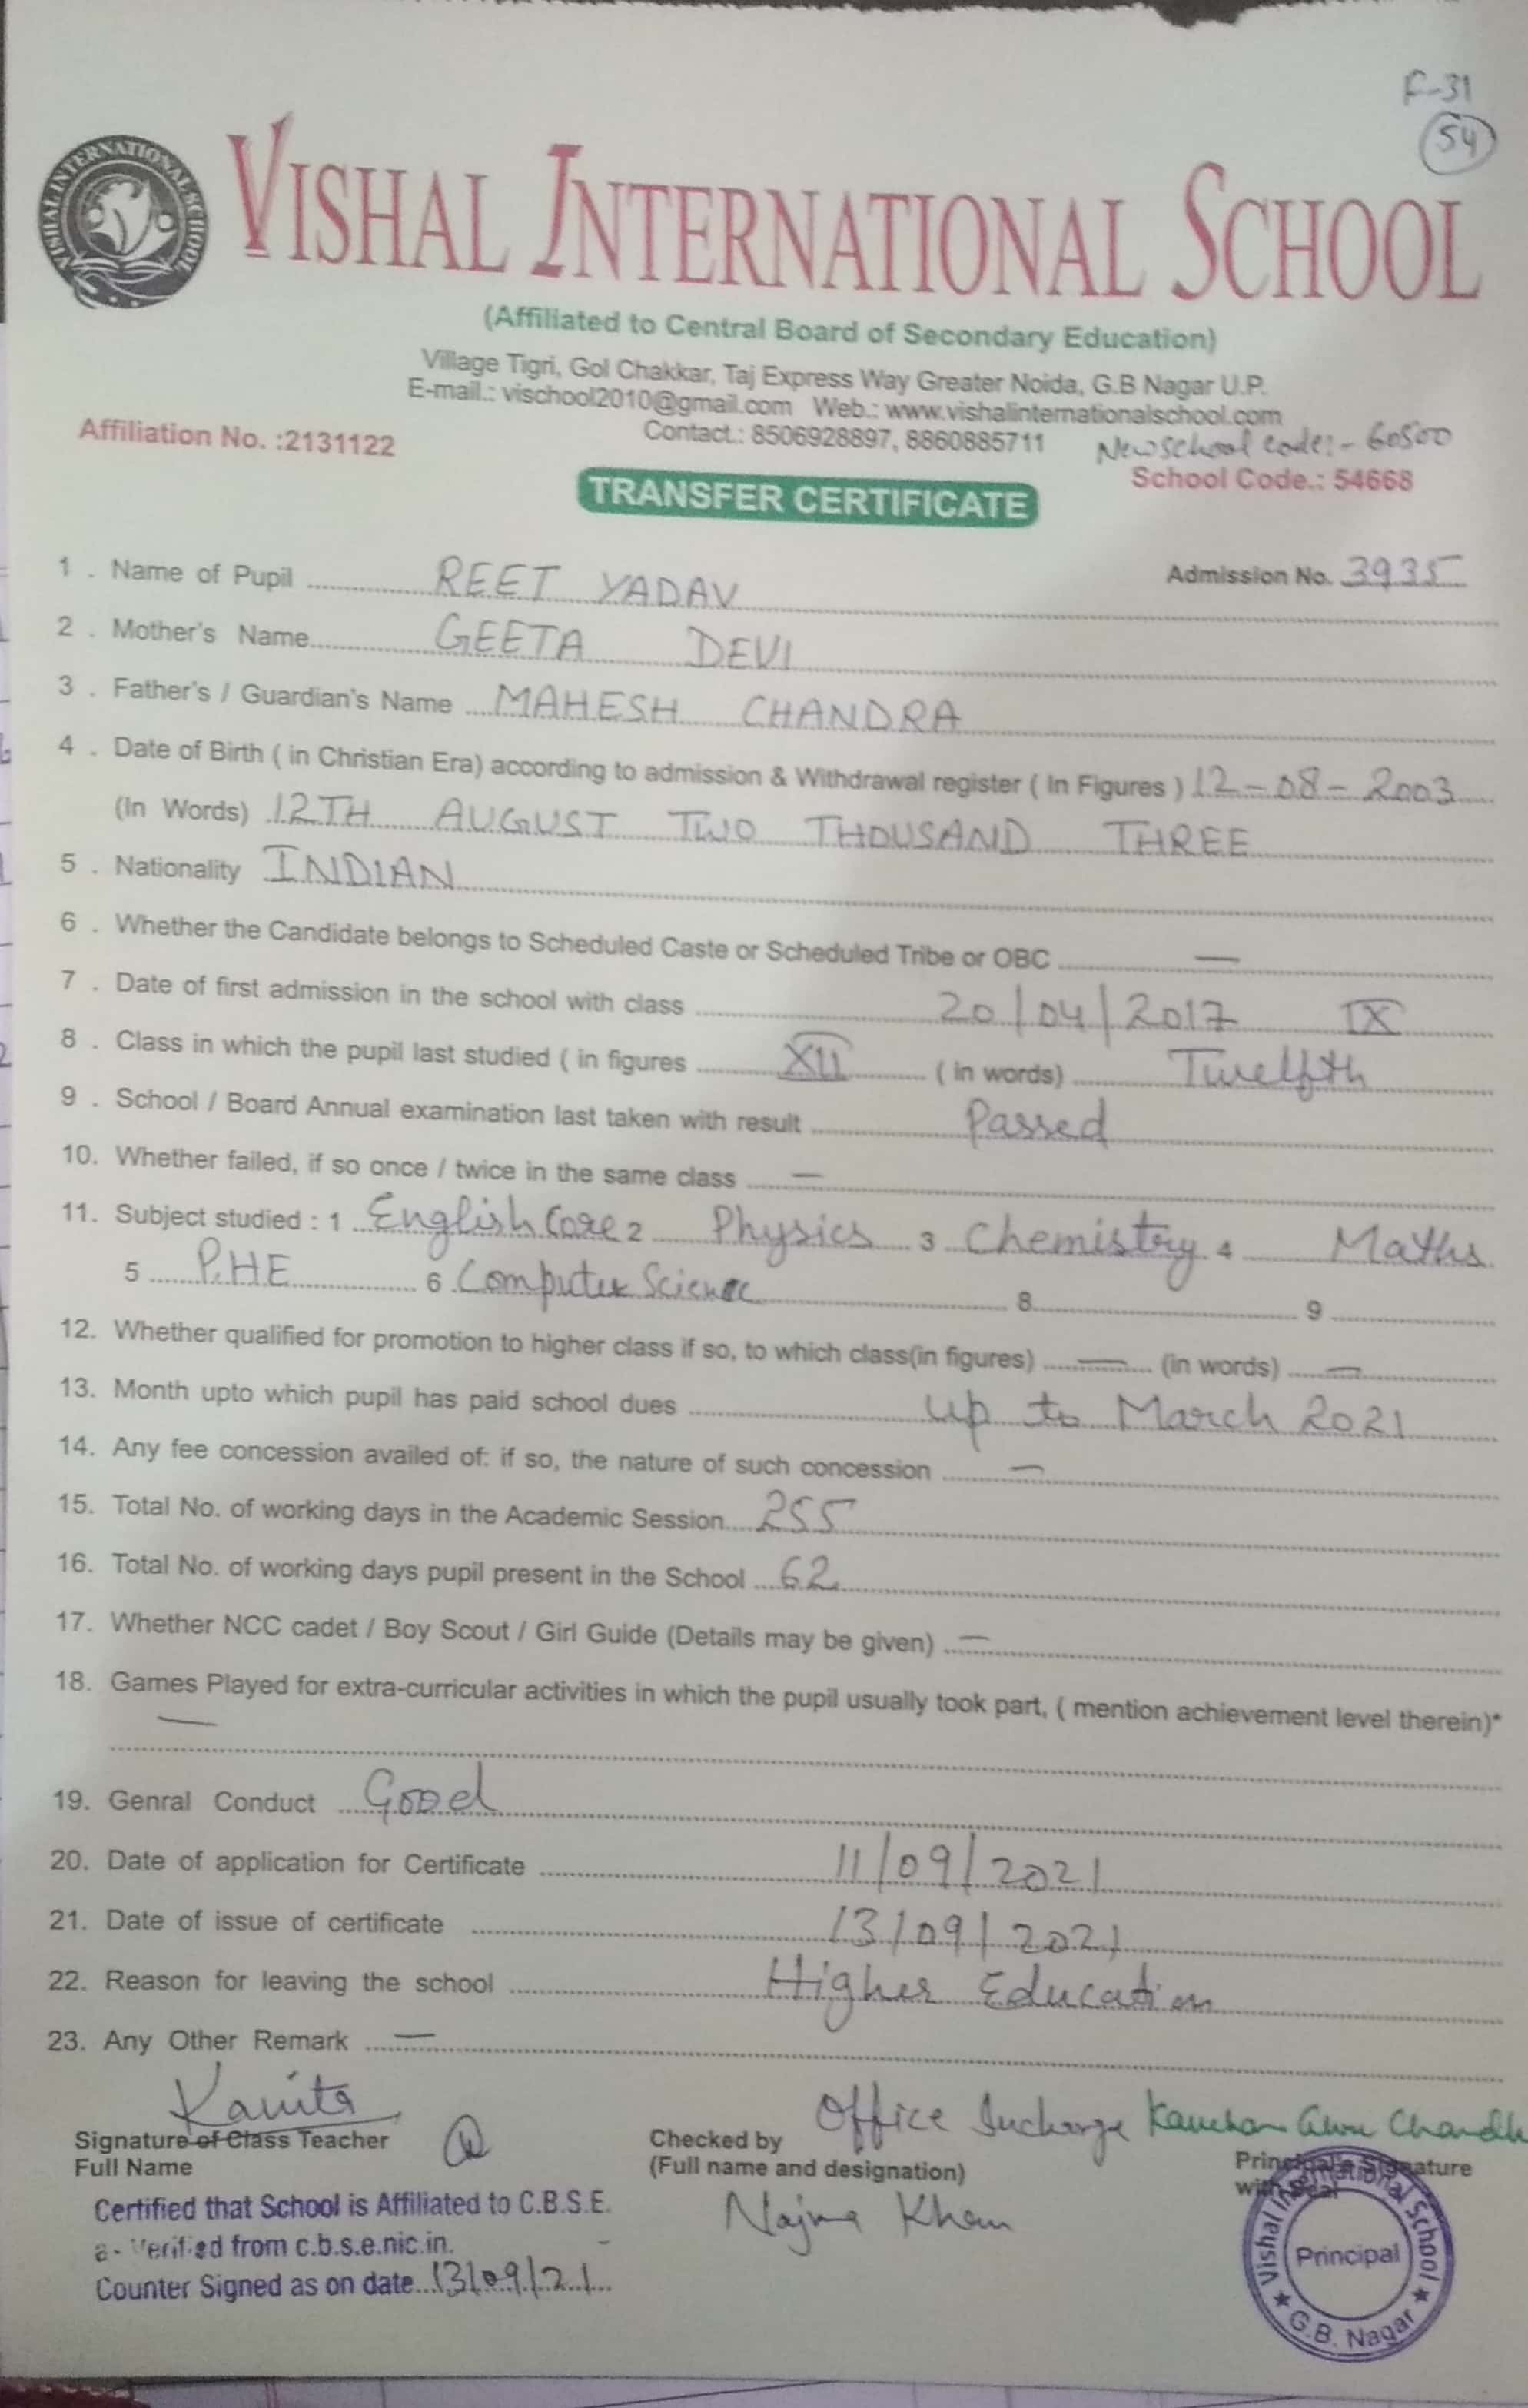 F-31
54
VISHAL INTERNATIONAL SCHOOL
VISHAL INTERNATIONAL SCHOOL
(Affiliated to Central Board of Secondary Education)
Village Tigri, Gol Chakkar, Taj Express Way Greater Noida, G.B Nagar U.P.
E-mail.: vischool2010@gmail.com Web.: www.vishalinternationalschool.com
Contact.: 8506928897, 8860885711 New school code:- 60500
Affiliation No. :2131122 School Code.: 54668
TRANSFER CERTIFICATE
1 . Name of Pupil REET YADAV Admission No. 3935
2 . Mother's Name GEETA DEVI
3 . Father's / Guardian's Name MAHESH CHANDRA
4 . Date of Birth ( in Christian Era) according to admission & Withdrawal register ( In Figures ) 12-08-2003
(In Words) 12TH AUGUST TWO THOUSAND THREE
5 . Nationality INDIAN
6 . Whether the Candidate belongs to Scheduled Caste or Scheduled Tribe or OBC —
7 . Date of first admission in the school with class 20/04/2017 IX
8 . Class in which the pupil last studied ( in figures XII ( in words) Twelfth
9 . School / Board Annual examination last taken with result Passed
10. Whether failed, if so once / twice in the same class —
11. Subject studied : 1 English Core 2 Physics 3 Chemistry 4 Maths
5 P.HE 6 Computer Science 8 9
12. Whether qualified for promotion to higher class if so, to which class(in figures) — (in words) —
13. Month upto which pupil has paid school dues up to March 2021
14. Any fee concession availed of: if so, the nature of such concession —
15. Total No. of working days in the Academic Session 255
16. Total No. of working days pupil present in the School 62
17. Whether NCC cadet / Boy Scout / Girl Guide (Details may be given) —
18. Games Played for extra-curricular activities in which the pupil usually took part, ( mention achievement level therein)*
—
19. Genral Conduct Good
20. Date of application for Certificate 11/09/2021
21. Date of issue of certificate 13/09/2021
22. Reason for leaving the school Higher Education
23. Any Other Remark —
Kavita Office Incharge
Signature of Class Teacher Checked by Principal's Signature
Full Name (Full name and designation) with Seal
Certified that School is Affiliated to C.B.S.E. Najma Khan
Verified from c.b.s.e.nic.in.
Counter Signed as on date 13/09/21
Vishal International School
Principal
G.B. Nagar